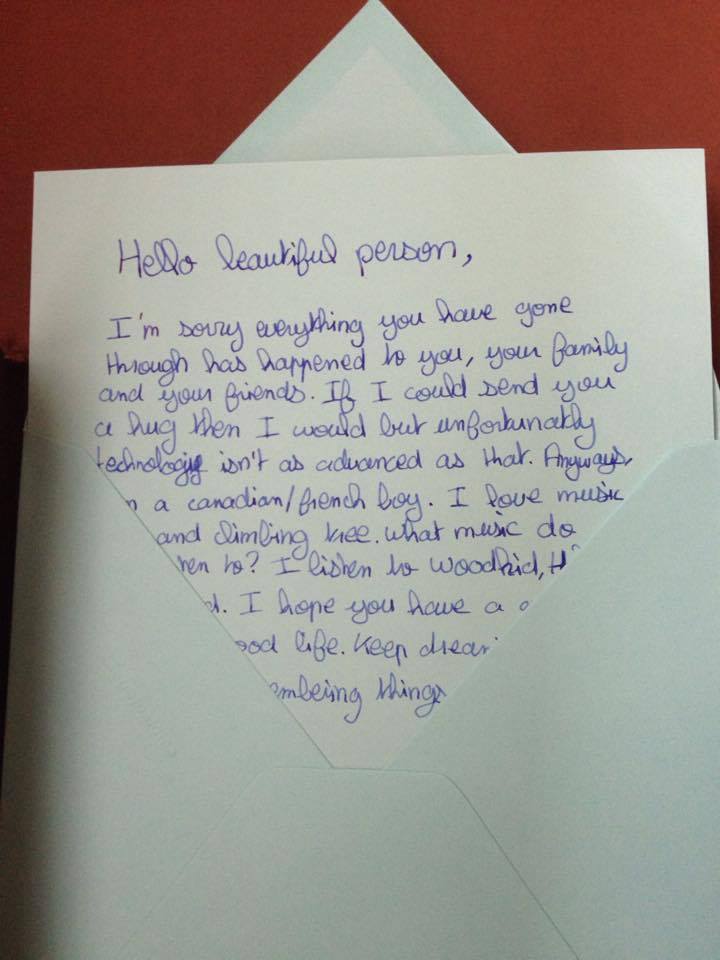 Hello beautiful person,
I'm sorry everything you have gone
through has happened to you, your family
and your friends. If I could send you
a hug then I would but unfortunatly
technologie isn't as advanced as that. Anyways,
a canadian/french boy. I love music
and climbing tree. what music do
to? I listen to Woodkid,
I hope you have a
life. Keep
things